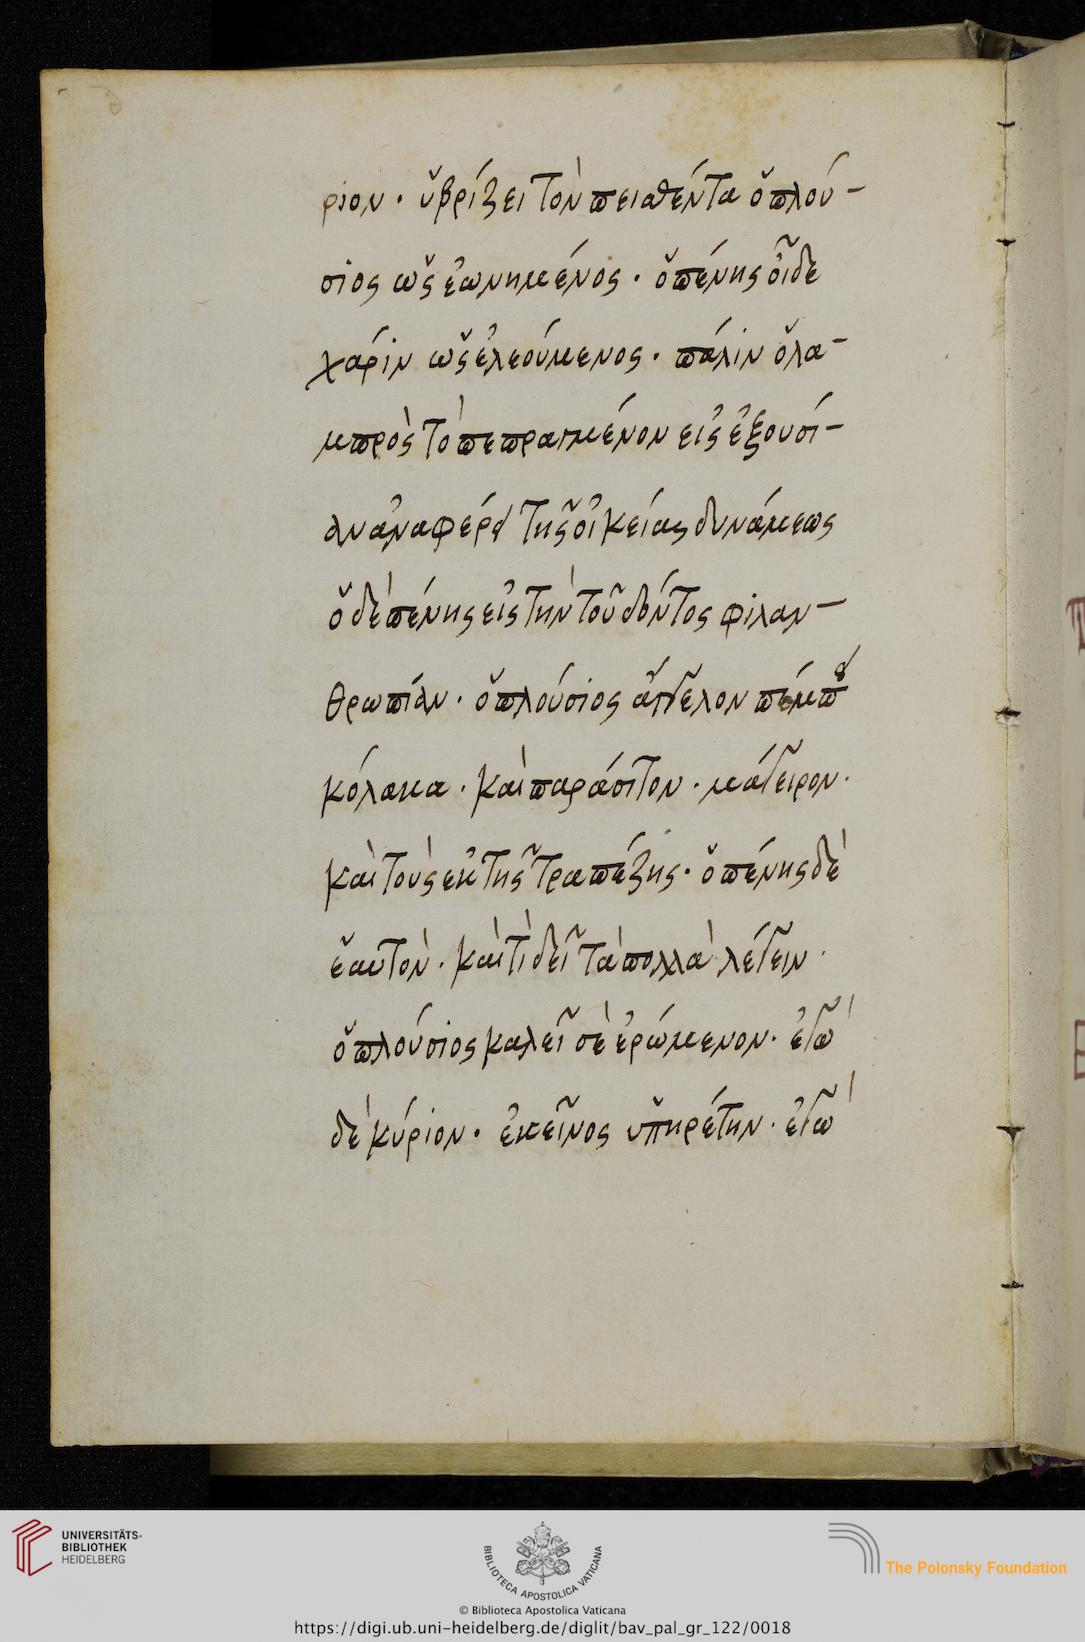 ριον · ὑβρίζει τὸν πεισθέντα ὁ πλού-
σιος ὡς ἐωνημένος · ὁ πένης οἶδε
χάριν ὡς ἐλεούμενος · πάλιν ὁ λα-
μπρὸς τὸ πεπραγμένον εἰς ἐξουσί-
αν ἀναφέρει τῆς οἰκείας δυνάμεως
ὁ δὲ πένης εἰς τὴν τοῦ δόντος φιλαν-
θρωπίαν · ὁ πλούσιος ἄγγελον πέμπει
κόλακα · καὶ παράσιτον · μάγειρον ·
καὶ τοὺς ἐκ τῆς τραπέζης · ὁ πένης δὲ
ἑαυτὸν · καὶ τὶ δεῖ τὰ πολλὰ λέγειν ·
ὁ πλούσιος καλεῖ σὲ ἐρώμενον · ἐγὼ
δὲ κύριον · ἐκεῖνος ὑπηρέτην · ἐγὼ
UNIVERSITÄTS-
BIBLIOTHEK
HEIDELBERG
BIBLIOTECA APOSTOLICA VATICANA
The Polonsky Foundation
© Biblioteca Apostolica Vaticana
https://digi.ub.uni-heidelberg.de/diglit/bav_pal_gr_122/0018